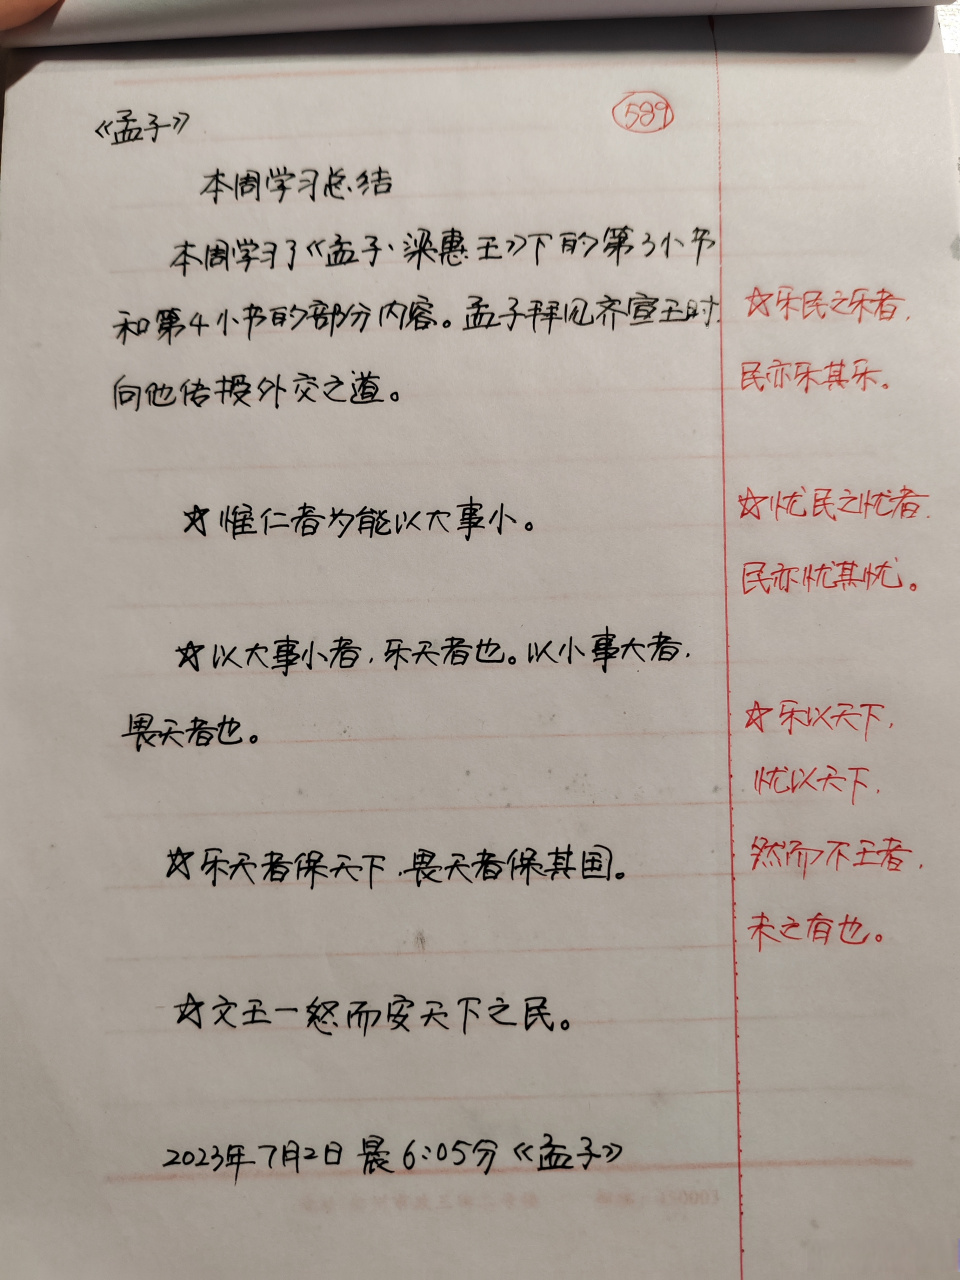 《孟子》
589
本周学习总结
本周学习了《孟子·梁惠王》下的第3小节
和第4小节的部分内容。孟子拜见齐宣王时,
向他传授外交之道。
☆惟仁者为能以大事小。
☆以大事小者,乐天者也。以小事大者,
畏天者也。
☆乐天者保天下,畏天者保其国。
☆文王一怒而安天下之民。
2023年7月2日 晨6:05分《孟子》
☆乐民之乐者,
民亦乐其乐。
☆忧民之忧者,
民亦忧其忧。
☆乐以天下,
忧以天下,
然而不王者,
未之有也。